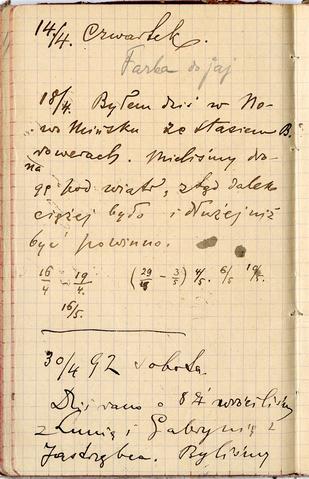 14/4. Czwartek.
Farba do jaj
18/4. Byłem dziś w No-
wo Mińsku ze Stasiem B.
na rowerach. Mieliśmy dro-
gę pod wiatr, ztąd daleko
ciężej było i dłużej niż
być powinno.
16/4 19/4. (29/ – 3/5) 4/5. 6/5 19/5.
16/5.
30/4 92 sobota.
Dziś rano o 8 wróciliśmy
z Lunią i Gabrynią z
Jastrzębca. Byliśmy